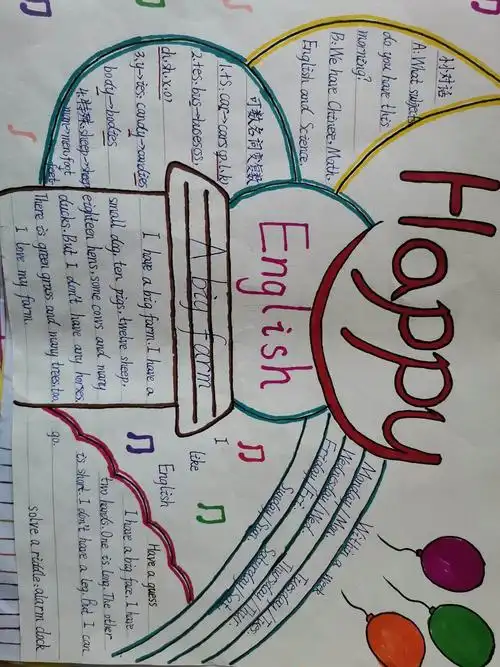 Happy
English
对对话
A: What subject
do you have this
morning?
B: We have Chinese, Math
English and Science.
可数名词变复数
1.+s. cap→caps
2.+es. bus→buses
ch.sh.x.o)
3.y→ies. candy→candies
body→bodies
sheep→sheep
man-men foot
feet
A big farm
I have a big farm. I have a
small dog, ten pigs, twelve sheep.
eighteen hens, some cows and many
ducks. But I don't have any horses.
There is green grass and many trees, too.
I love my farm.
I
like
English
Have a guess
I have a big face. I have
two hands. One is long. The other
is short. I don't have a leg. But I can
go.
solve a riddle: alarm clock
Monday Mon.
Tuesday Tues.
Wednesday Wed.
Friday Fri.
Sunday Sun.